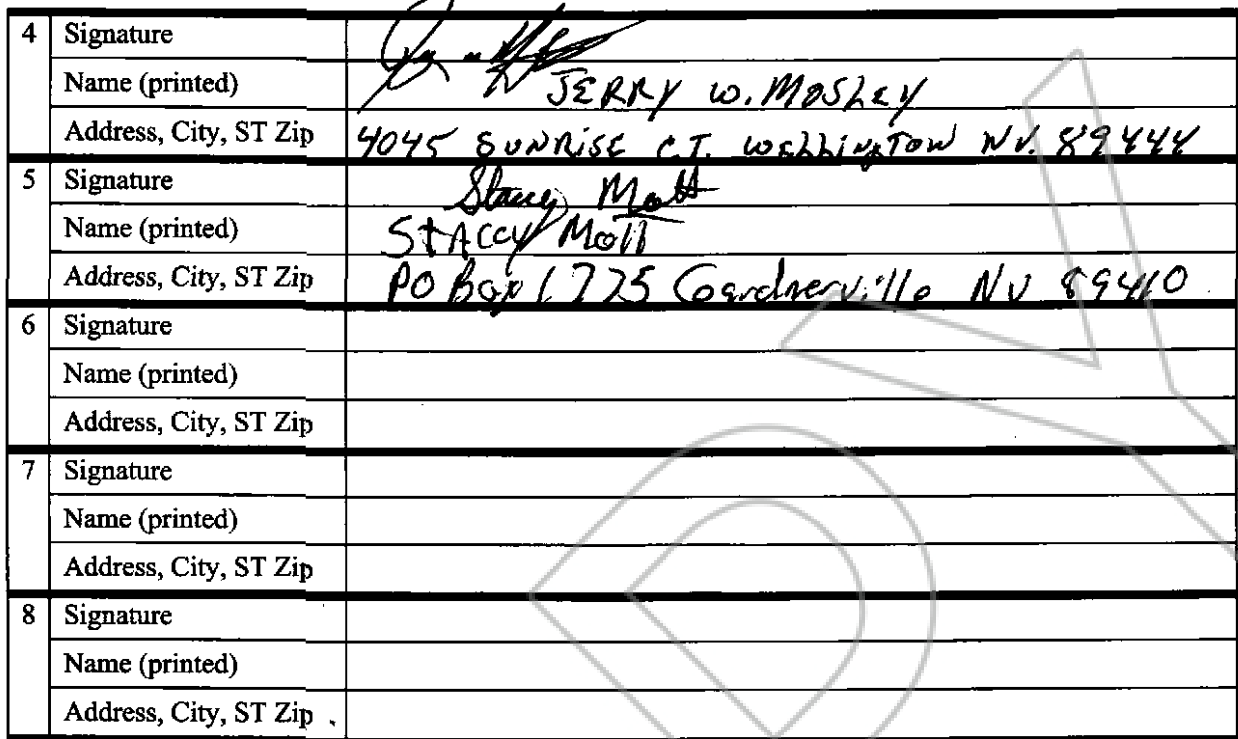 4 Signature
Name (printed) JERRY W. MOSLEY
Address, City, ST Zip 4045 SUNRISE CT. WELLINGTON NV. 89444
5 Signature Stacey Mott
Name (printed) STACCY Mott
Address, City, ST Zip PO Box 1725 Gardnerville NV 89410
6 Signature
Name (printed)
Address, City, ST Zip
7 Signature
Name (printed)
Address, City, ST Zip
8 Signature
Name (printed)
Address, City, ST Zip